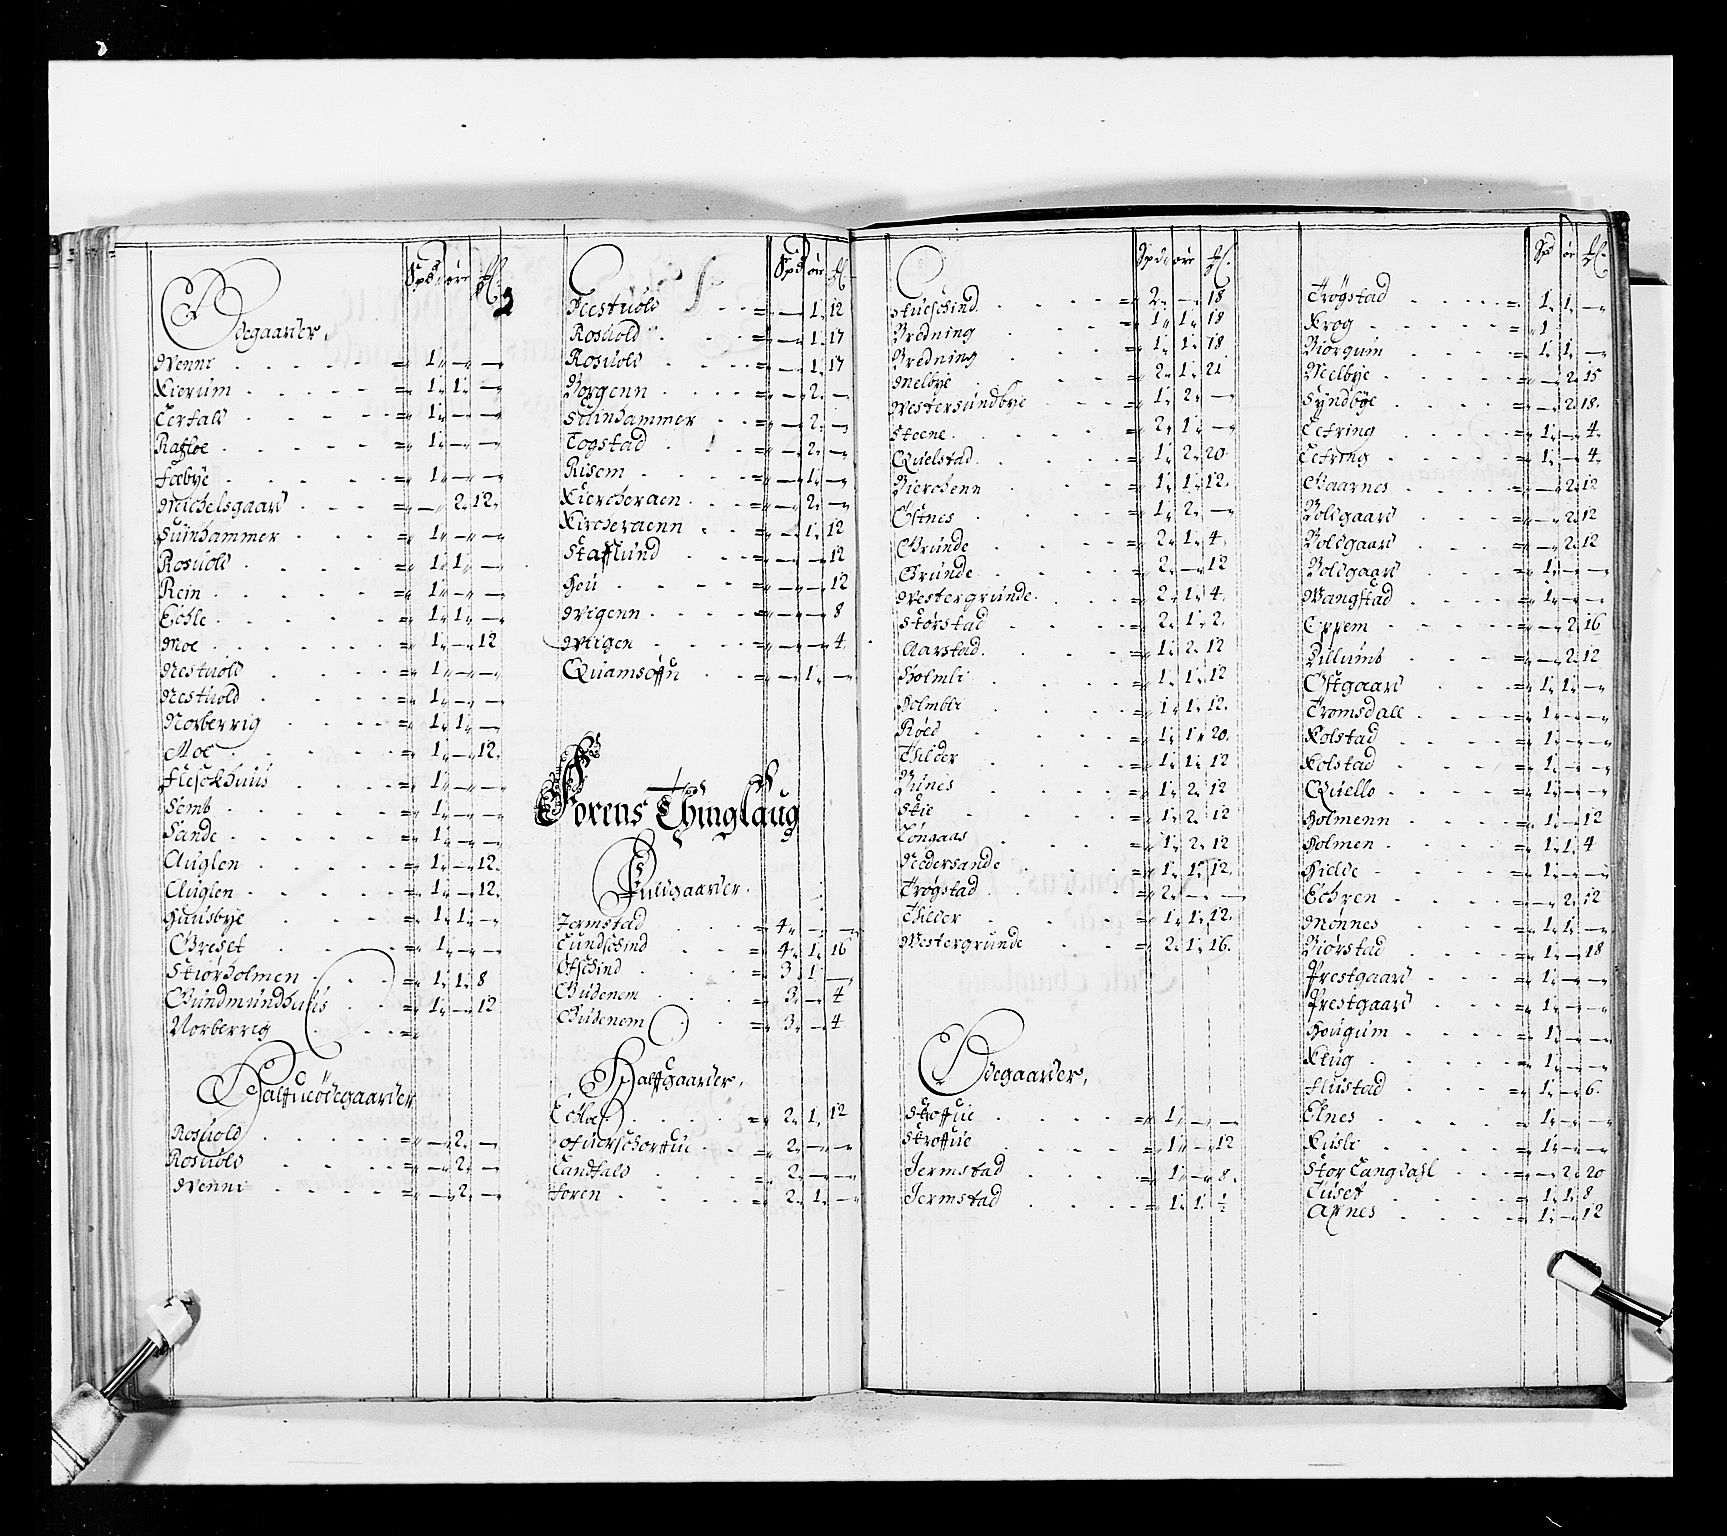 Spd øre
Ødegaarder,
Wenni 1 — —
Kierum 1 1 —
Lerfald 1 — —
1 — —
Fæbye 1 — —
Meichelsgaard — 2 12
Suinhammer 1 — —
Rosuold 1 1 —
Rein 1 — —
Echle 1 1 —
Moe 1 — 12
Nestuold 1 — —
Nestuold 1 — —
Norberrig 1 1 —
Moe 1 — 12
Flesckhuus 1 — —
Semb 1 — —
Sande 1 — —
Auglen 1 — 12
Auglen 1 — 12
Hausbye 1 1 —
Greset 1 — —
Skiørholmen 1 1 8
Gundmundhuus 1 — 12
Norberrig
Halffueødegaarder
Rosuold — 2 —
Rosuold — 2 —
Wenni — 2 —
Spd øre
Nestuold — 1 12
Rosuold — 1 17
Rosuold — 1 17
Borgenn — 2 —
Suinhammer — 2 —
Togstad — 2 —
Risem — 1 —
Kiercheraen — 2 —
Kircheraenn — 1 12
Stafflund — — 12
Heu — — 12
Wigenn — — 8
Wiigen — — 4
— 1 —
Forens Thinglaug
Fuldgaarder.
Jermstad 4 — —
Lundschind 4 1 16
Ofschind 3 1 —
Gudenem 3 — 4
Gudenem 3 — 4
Halffgaarder,
Echloe 2 1 12
2 — —
Landfald 2 — —
Foren 2 1 —
Spd øre
Stueschind 2 — 18
Bredning 1 1 18
Bredning 1 1 18
Melbye 2 1 21
Westersundbye 1 2 —
Steene 2 1 —
Quelstad 1 2 20
Bierchenn 1 1 12
Ostnes 1 2 —
Grunde 2 1 4
Grunde 2 — 12
Westergrunde 2 1 4
Storstad 2 1 2
Aarstad 1 2 12
Holmli 1 1 12
Holmbli 1 1 12
Røed 1 1 20
Thilder 1 1 12
1 2 12
Stie 1 2 12
Longaas 1 2 12
Nedersande 1 1 12
Trøgstad 2 — —
Thiller 1 1 12
Westergrunde 2 1 16
Ødegaarder,
Skroffue 1 — —
Skroffue 1 — 12
Jermstad 1 — 8
Jermstad 1 1 ½
Spd ør
Trøgstad 1 1 —
Krog 1
Biorgum 1 1 —
Melbye — 2 15
Syndbye — 2 18
Lefring 1 — 4
Lefring 1 — 4
Gaarnes — 2 12
Boldgaard — 2 12
Boldgaard — 2 12
Boldgaard 1 — —
Wangstad 1 — —
Eppem — 2 16
Dillumb — 2 12
Ostgaard 1 1 —
Tromsdall 1 — —
Kolstad 1 — —
Kolstad 1 — —
Quello 1 — —
Holmenn 1 — 12
Holmen 1 1 4
Hielde 1 — —
Echren — 2 12
Mønnes 1 1 —
Biørstad 1 — 18
Prestgaard 1 — —
Prestgaard 1 — —
Hougum 1 — —
Klug 1 — —
Flustad 1 — 6
Elnes 1 — —
Kusli 1 — —
Stor Langdahl — 2 20
Tuset 1 1 8
Apnes 1 — 12